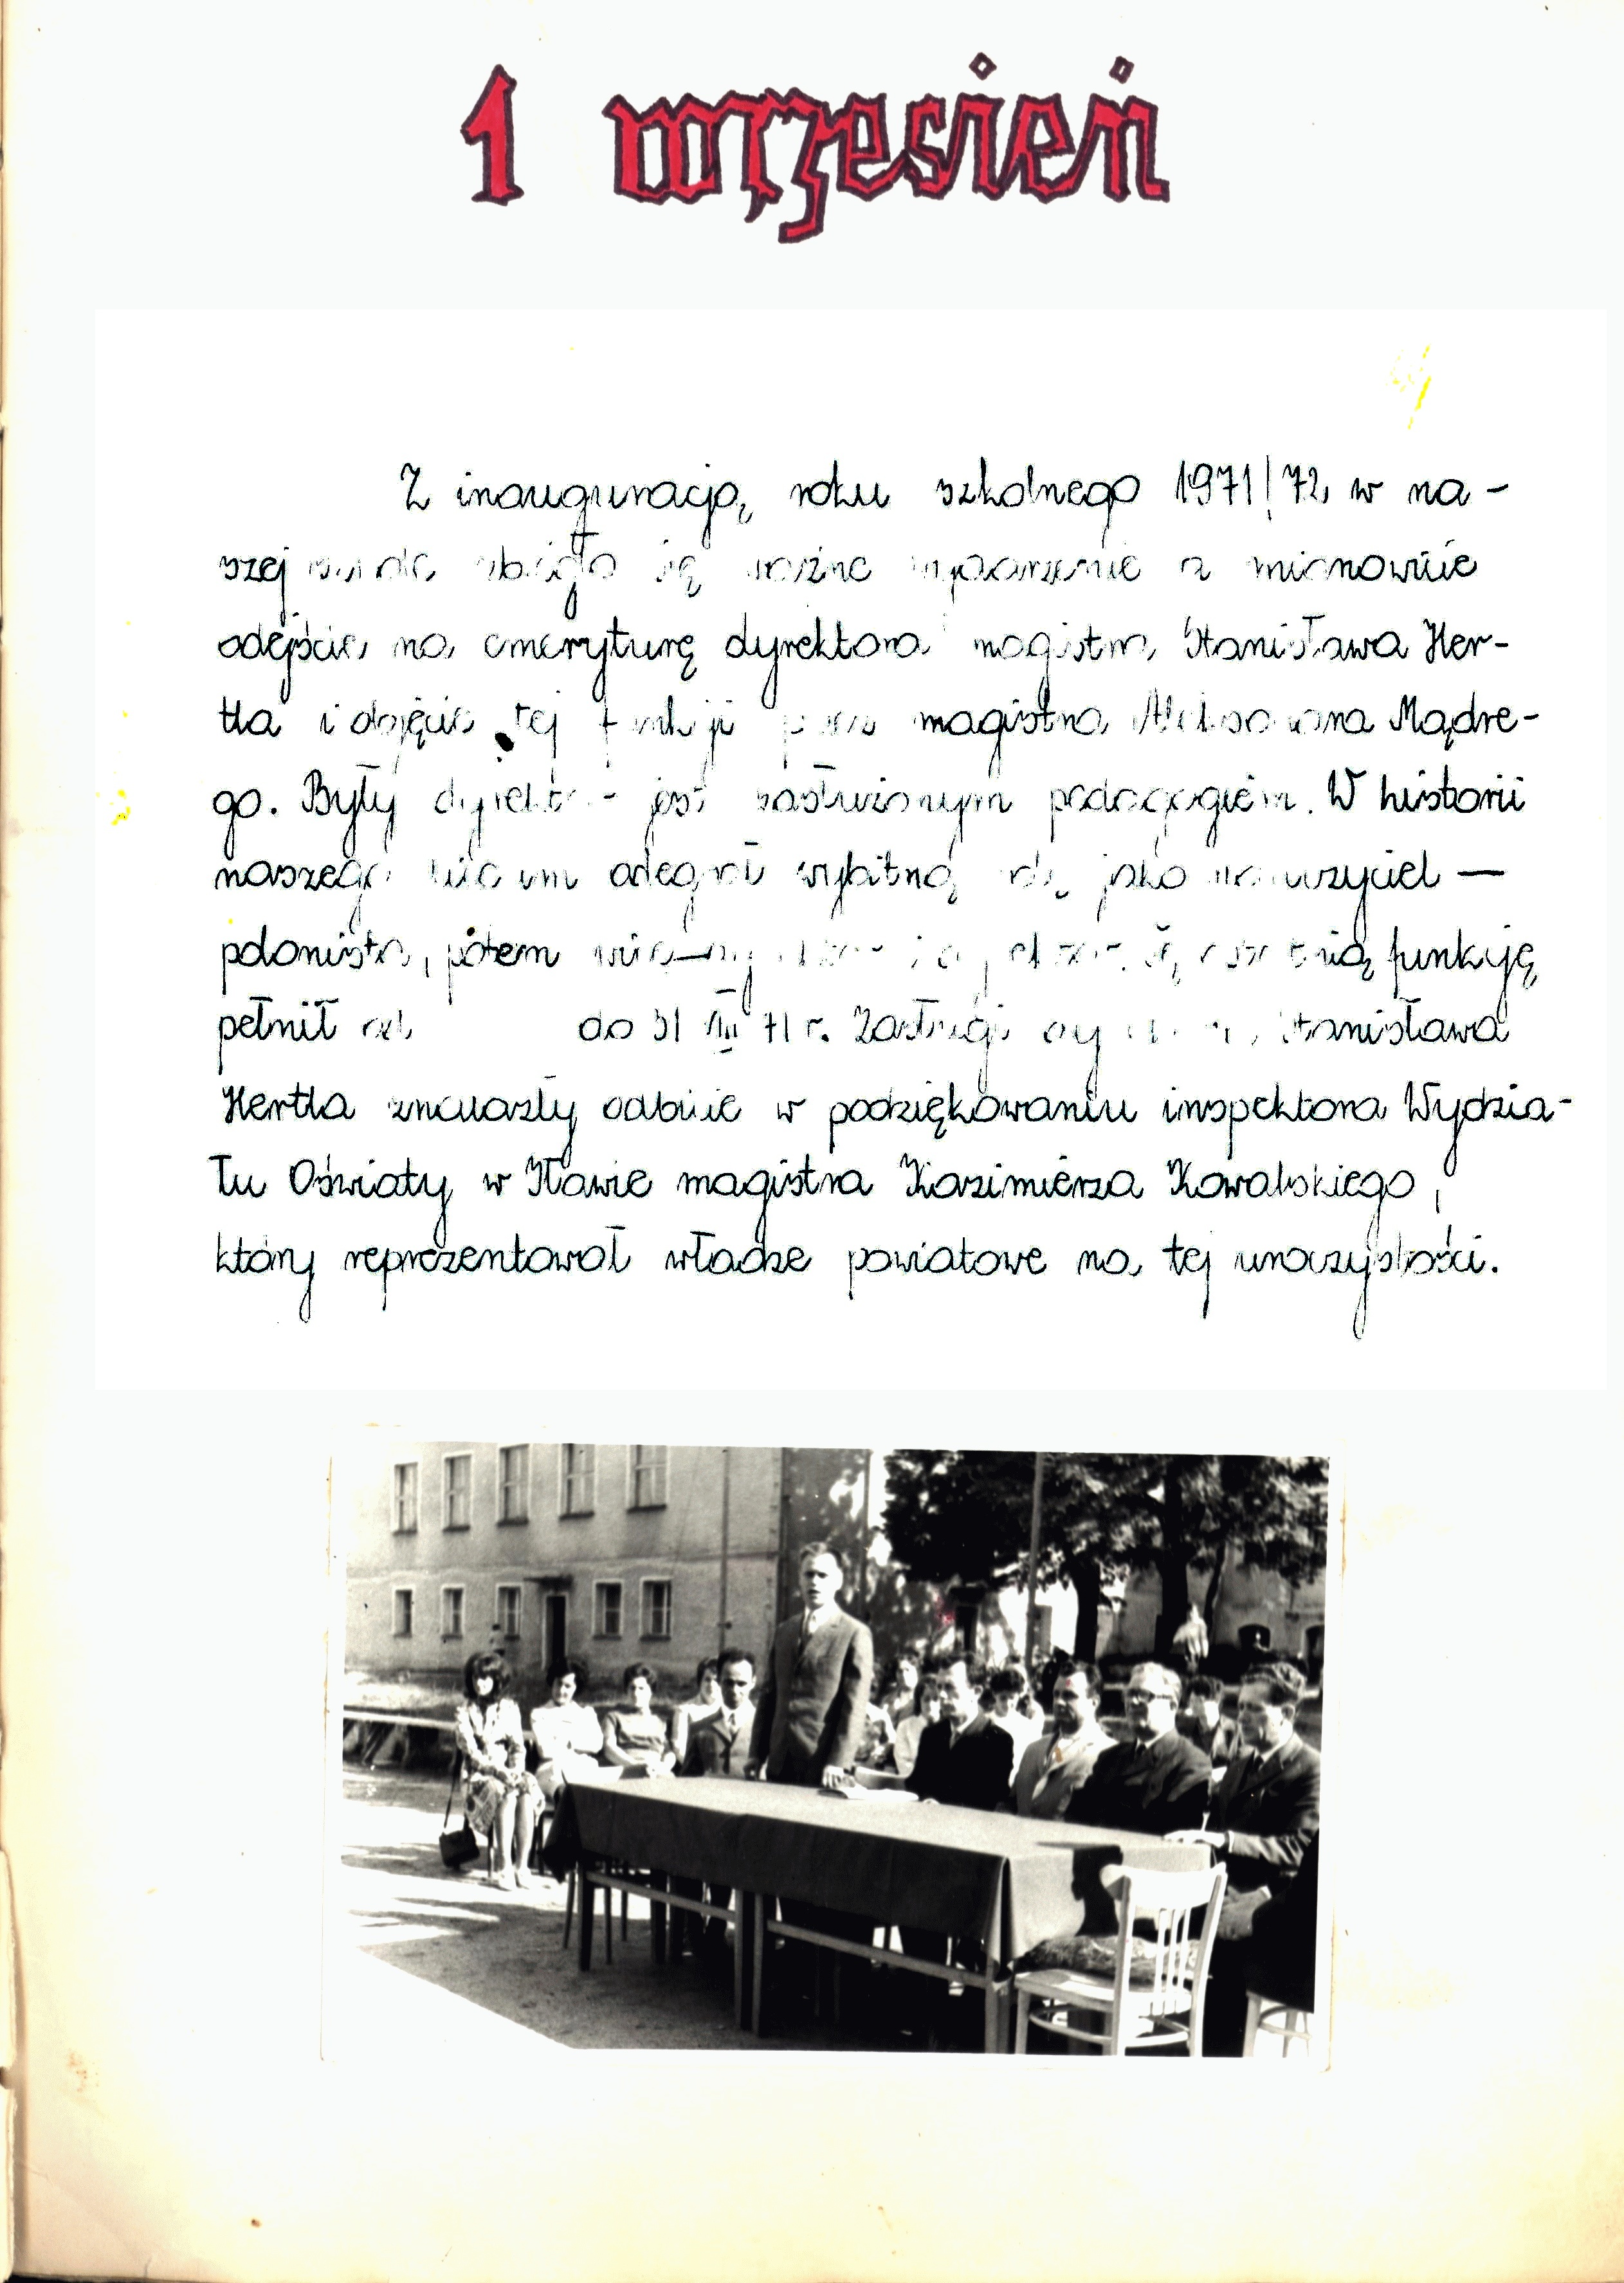 1 wrzesień
Z inauguracją roku szkolnego 1971/72 w na-
szej szkole zbiegło się ważne wydarzenie a mianowicie
odejście na emeryturę dyrektora magistra Stanisława Her-
tla i objęcie tej funkcji przez magistra Aleksandra Mądre-
go. Były dyrektor jest zasłużonym pedagogiem. W historii
naszego liceum odegrał wybitną rolę jako nauczyciel —
polonista, potem funkcję
pełnił od do 31 VIII 71 r. Zasługi Stanisława
Hertla znalazły odbicie w podziękowaniu inspektora Wydzia-
łu Oświaty w Iławie magistra Kazimierza Kowalskiego,
który reprezentował władze powiatowe na tej uroczystości.